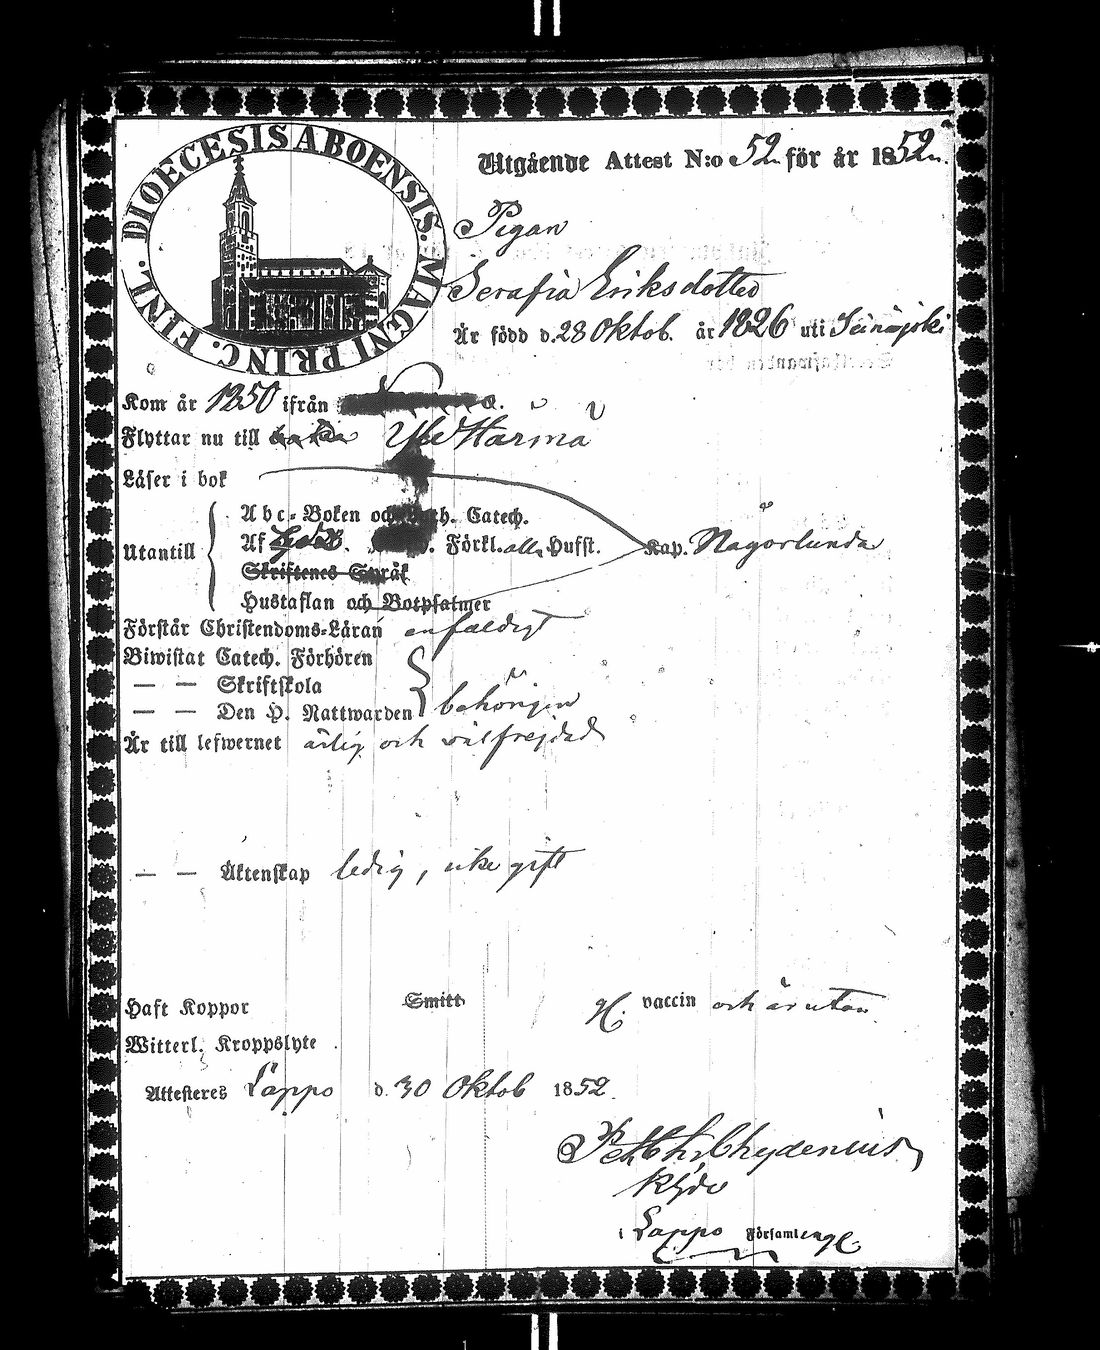 DIOECESIS ABOENSIS. MAGNI PRINC. FINL.
Utgående Attest N:o 52 för år 1852.
Pigan
Serafia Eriksdotter
Är född d. 28 Oktob. år 1826 uti Seinäjoki
Kom år 1850 ifrån
Flyttar nu till Yli Härmä
Läser i bok
Utantill
Abc-Boken och Luth. Catech.
Af Förkl. alla Hufst. Kap. Någorlunda
Skriftenes Språk
Hustaflan och Botpsalmer
Förstår Christendoms-Läran enfaldigt
Biwistat Catech. Förhören
— — Skriftskola
— — Den H. Nattwarden behörigen
Är till lefwernet ärlig och välfrejdad
— — Äktenskap ledig, icke gift
Haft Koppor Smitt vaccin och är utan
Witterl. Kroppslyte.
Attesteres Lappo d. 30 Oktob 1852.
Chydenius
i Lappo Församling